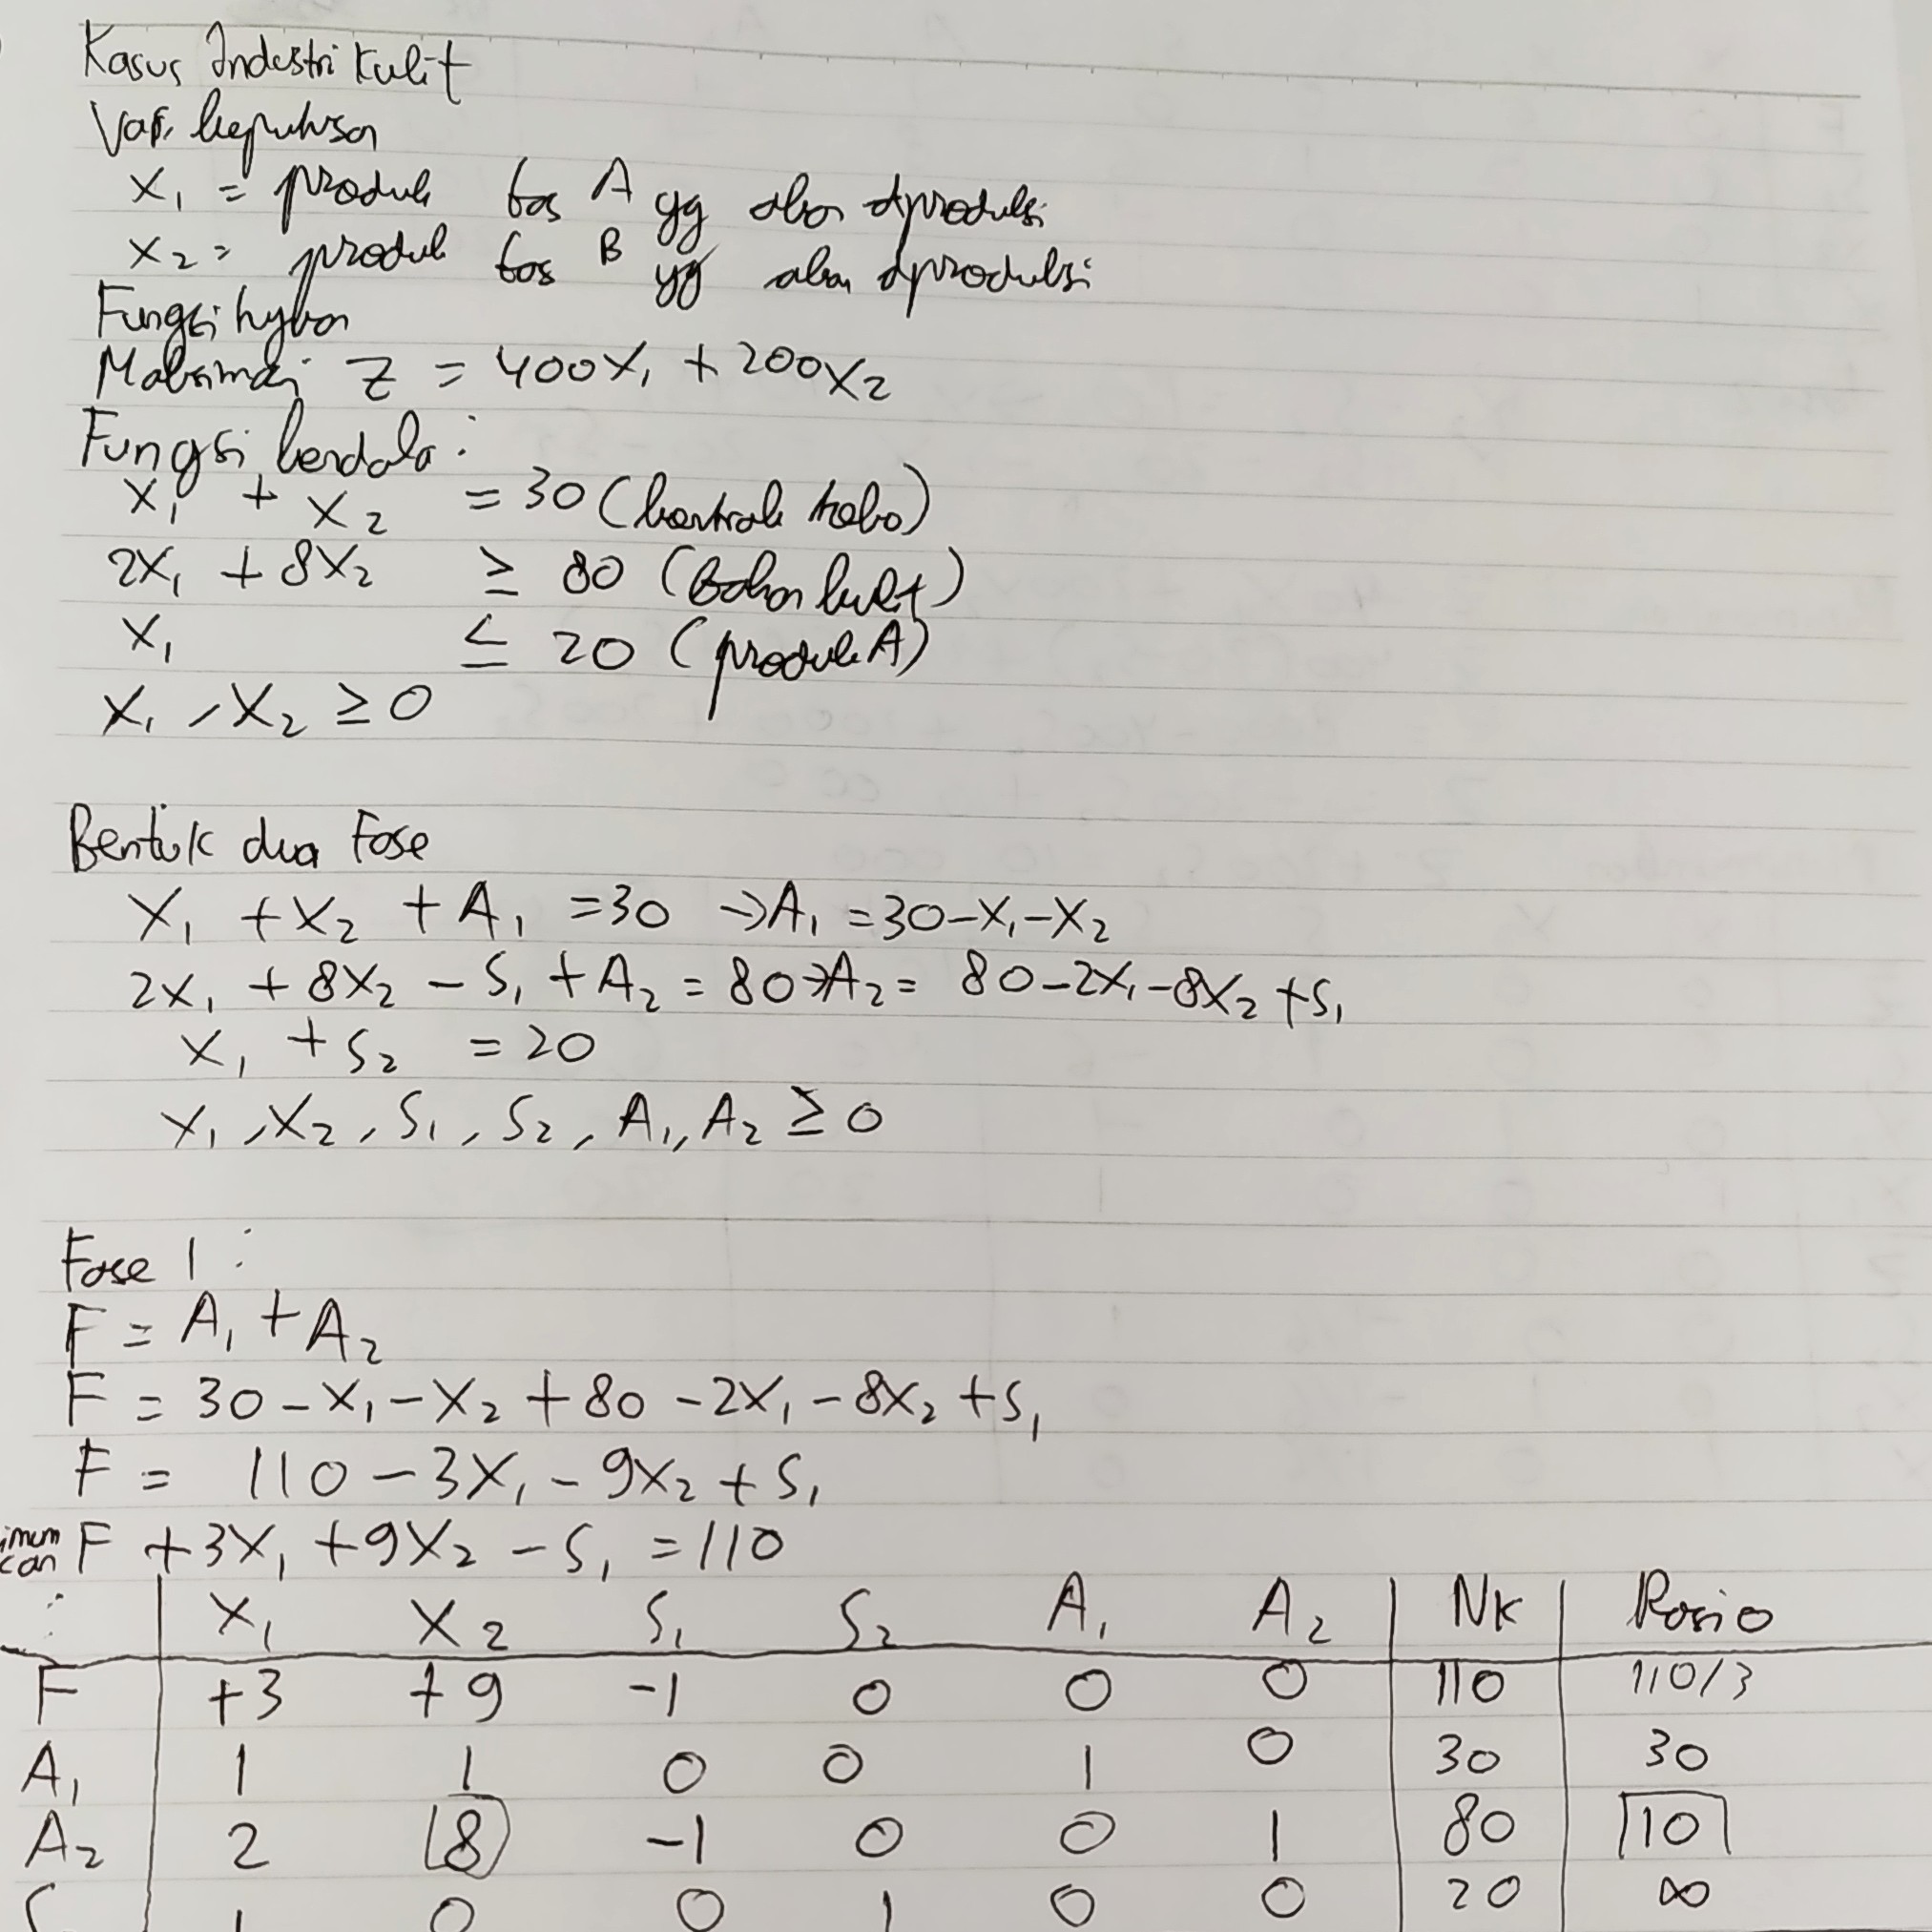 Kasus Industri Kulit
Var. keputusan
X₁ = produk tas A yg akan diproduksi
X₂ = produk tas B yg akan diproduksi
Fungsi tujuan
Maksimasi Z = 400X₁ + 200X₂
Fungsi kendala :
X₁ + X₂ = 30 (kontrak toko)
2X₁ + 8X₂ ≥ 80 (Bahan kulit)
X₁ ≤ 20 (produk A)
X₁, X₂ ≥ 0
Bentuk dua Fase
X₁ + X₂ + A₁ = 30 → A₁ = 30 - X₁ - X₂
2X₁ + 8X₂ - S₁ + A₂ = 80 → A₂ = 80 - 2X₁ - 8X₂ + S₁
X₁ + S₂ = 20
X₁, X₂, S₁, S₂, A₁, A₂ ≥ 0
Fase 1 :
F = A₁ + A₂
F = 30 - X₁ - X₂ + 80 - 2X₁ - 8X₂ + S₁
F = 110 - 3X₁ - 9X₂ + S₁
F + 3X₁ + 9X₂ - S₁ = 110
X₁ X₂ S₁ S₂ A₁ A₂ NK Rasio
F +3 +9 -1 0 0 0 110 110/3
A₁ 1 1 0 0 1 0 30 30
A₂ 2 8 -1 0 0 1 80 10
1 0 0 1 0 0 20 ∞